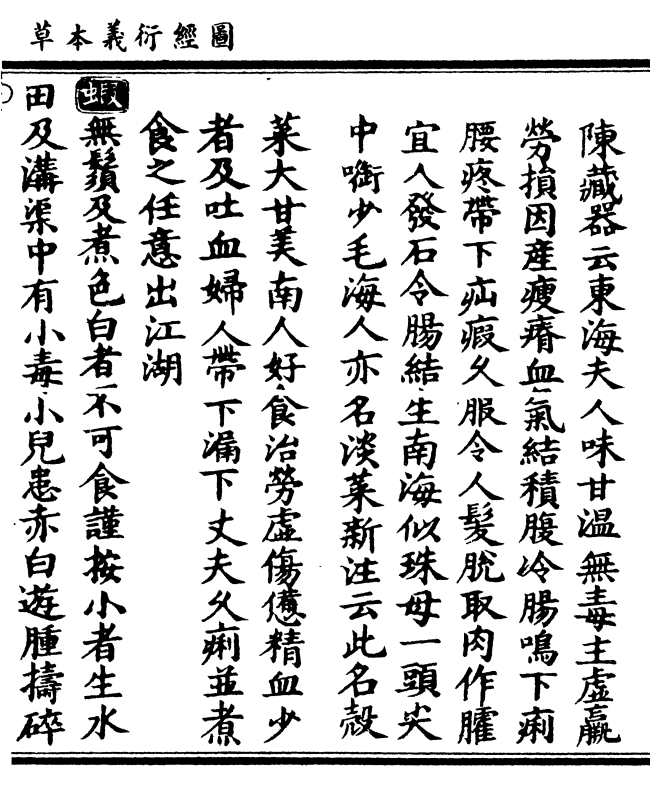 圖經衍義本草
陳藏器云東海夫人味甘溫無毒主虛羸
勞損因產瘦瘠血氣結積腹冷腸鳴下痢
腰疼帶下疝瘕久服令人髮脫取肉作臛
宜人發石令腸結生南海似珠母一頭尖
中㗸少毛海人亦名淡菜新注云此名殼
菜大甘美南人好食治勞虛傷憊精血少
者及吐血婦人帶下漏下丈夫久痢並煮
食之任意出江湖
蝦無鬚及煮色白者不可食謹按小者生水
田及溝渠中有小毒小兒患赤白遊腫擣碎